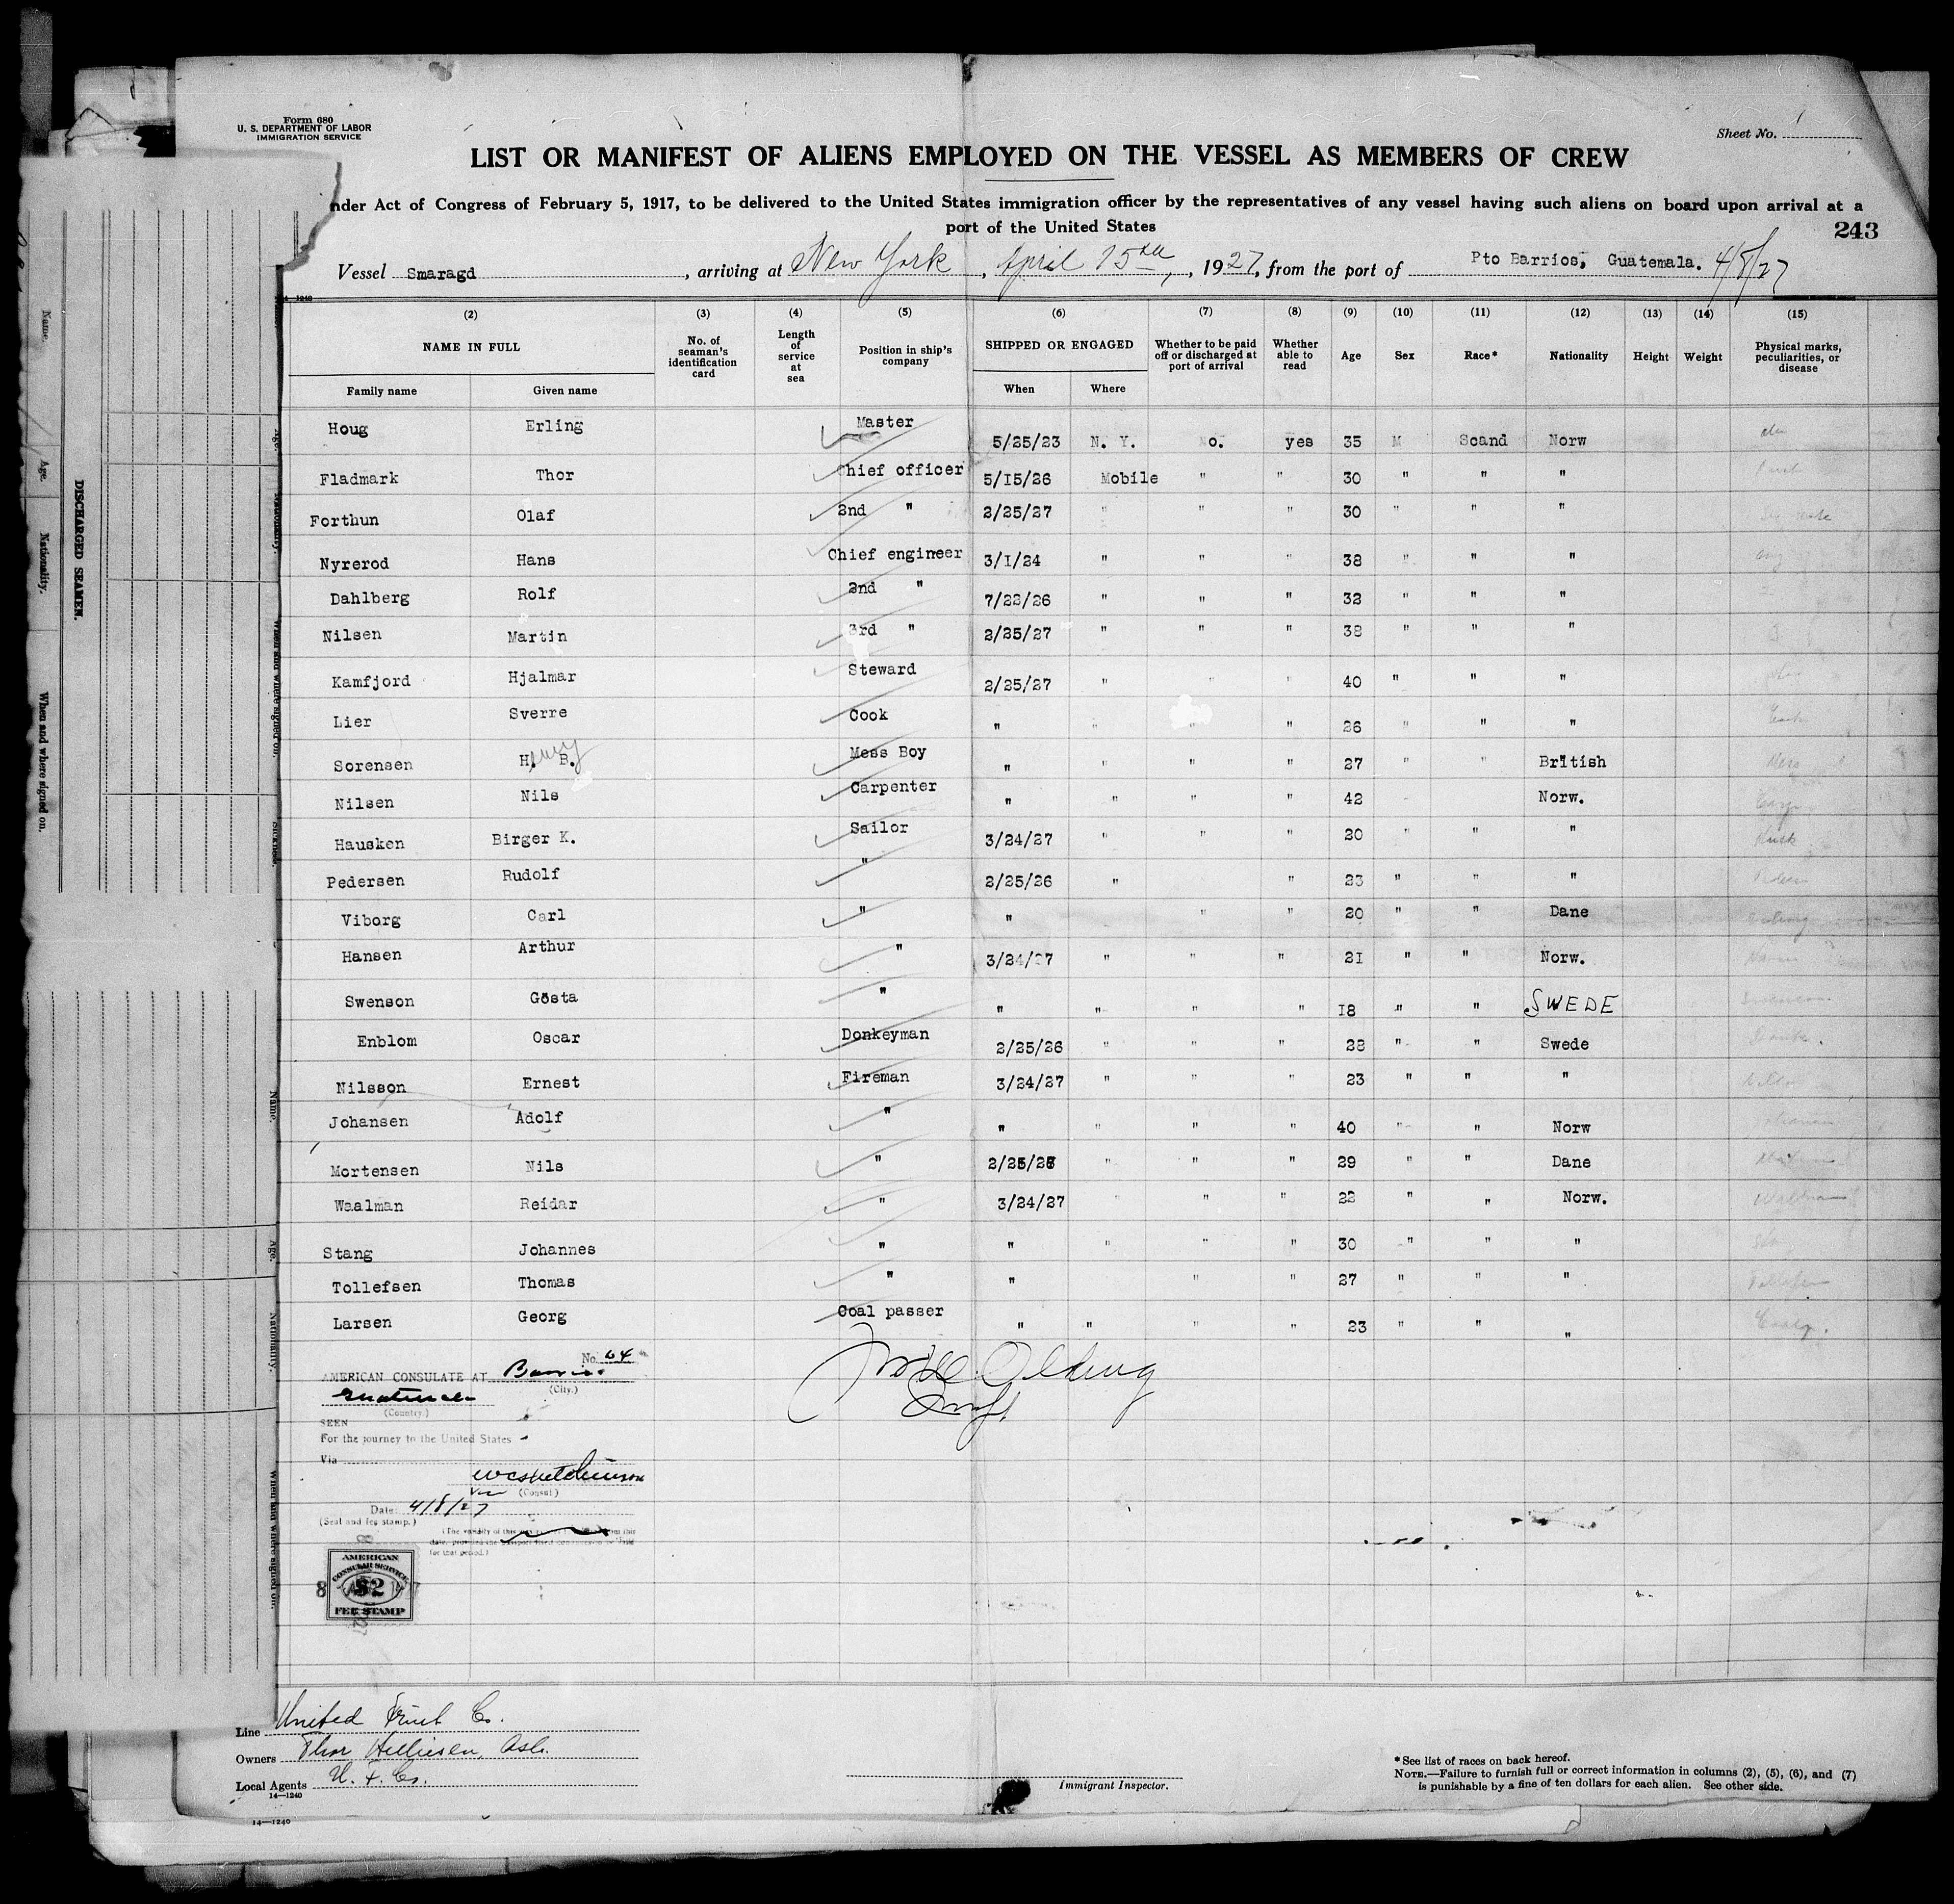 Form 680
U. S. DEPARTMENT OF LABOR
IMMIGRATION SERVICE
Sheet No. 1
LIST OR MANIFEST OF ALIENS EMPLOYED ON THE VESSEL AS MEMBERS OF CREW
nder Act of Congress of February 5, 1917, to be delivered to the United States immigration officer by the representatives of any vessel having such aliens on board upon arrival at a
port of the United States
243
Vessel Smaragd, arriving at New York, April 15th, 1927, from the port of Pto Barrios, Guatemala. 4/8/27
(2) (3) (4) (5) (6) (7) (8) (9) (10) (11) (12) (13) (14) (15)
NAME IN FULL No. of seaman's identification card Length of service at sea Position in ship's company SHIPPED OR ENGAGED Whether to be paid off or discharged at port of arrival Whether able to read Age Sex Race* Nationality Height Weight Physical marks, peculiarities, or disease
Family name Given name When Where
Houg Erling Master 5/25/23 N. Y. o. yes 35 M Scand Norw
Fladmark Thor Chief officer 5/15/26 Mobile " " 30 " " "
Forthun Olaf 2nd " 2/25/27 " " " 30 " " "
Nyrerod Hans Chief engineer 3/1/24 " " " 38 " " "
Dahlberg Rolf 2nd " 7/22/26 " " " 32 " " "
Nilsen Martin 3rd " 2/25/27 " " " 38 " " "
Kamfjord Hjalmar Steward 2/25/27 " " " 40 " " "
Lier Sverre Cook " " " " 26 " " "
Sorensen H. B. Henry Mess Boy " " " " 27 " " British
Nilsen Nils Carpenter " " " " 42 Norw.
Hausken Birger K. Sailor 3/24/27 " " " 20 " " "
Pedersen Rudolf " 2/25/26 " " 23 " " "
Viborg Carl " " " " 20 " " Dane
Hansen Arthur " 3/24/27 " " " 21 " " Norw.
Swenson Gösta " " " " " 18 " " SWEDE
Enblom Oscar Donkeyman 2/25/26 " " " 28 " " Swede
Nilsson Ernest Fireman 3/24/27 " " " 23 " " "
Johansen Adolf " " " " " 40 " " Norw
Mortensen Nils " 2/25/26 " " " 29 " " Dane
Waalman Reidar " 3/24/27 " " " 22 " " Norw.
Stang Johannes " " " " " 30 " " "
Tollefsen Thomas " " " " 27 " " "
Larsen Georg Coal passer " " " " 23 " " "
No. 64
AMERICAN CONSULATE AT Barrios
(City.)
Guatemala
(Country.)
SEEN
For the journey to the United States
Via
(Consul)
Date: 4/8/27
(Seal and fee stamp.)
AMERICAN
CONSULAR SERVICE
$2
FEE STAMP
Line United Fruit Co.
Owners Thor
Local Agents U. F. Co.
14—1240
14—1240
Immigrant Inspector.
*See list of races on back hereof.
NOTE.—Failure to furnish full or correct information in columns (2), (5), (6), and (7)
is punishable by a fine of ten dollars for each alien. See other side.
DISCHARGED SEAMEN.
Name.
Age.
Nationality.
When and where signed on.
Name.
Age.
Nationality.
When and where signed on.